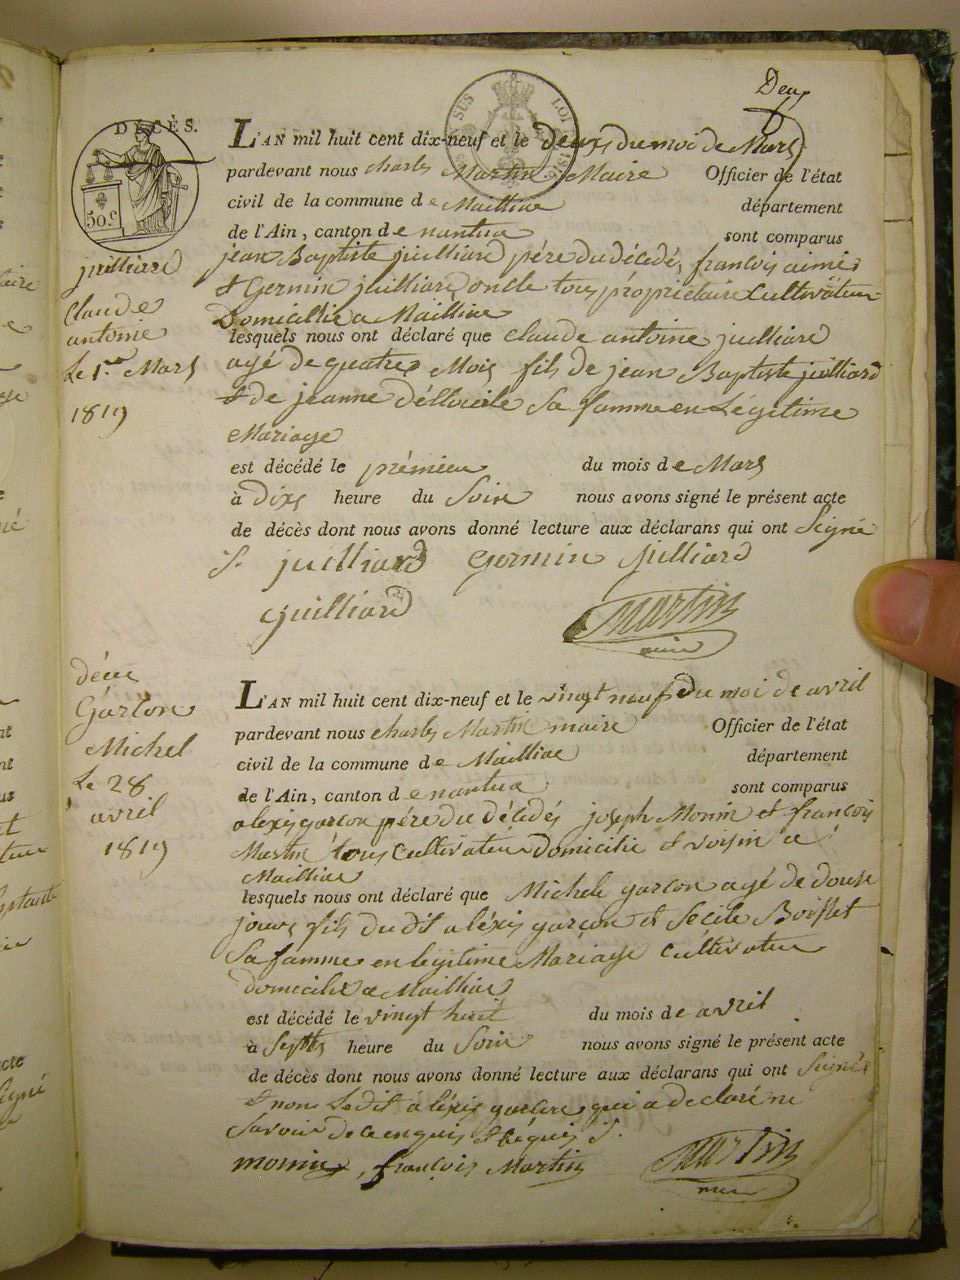 Deux
DÉCÈS.
50c
juilliard
Claude
antoine
Le 1er Mars
1819
L'AN mil huit cent dix-neuf et le deuxs du moi de Mars
pardevant nous charles Martin Maire Officier de l'état
civil de la commune de Mailliac département
de l'Ain, canton de nantua sont comparus
jean Baptiste juilliard pére du décédé, francois aimé
et Germin juilliard oncle tous propriétaire Cultivateur
Domicillié a Mailliac
lesquels nous ont déclaré que claude antoine juilliard
agé de quatres Mois fils de jean Baptiste juilliard
et de jeanne sa famme en Légitime
Mariage
est décédé le prémieu du mois de Mars
à dixs heure du Soir nous avons signé le présent acte
de décès dont nous avons donné lecture aux déclarans qui ont Seigné
juilliard Germin juilliard
juilliard Martin
Garcon
Michel
Le 28
avril
1819
L'AN mil huit cent dix-neuf et le vingt neuf du moi de avril
pardevant nous charles Martin maire Officier de l'état
civil de la commune de Mailliac département
de l'Ain, canton de nantua sont comparus
alexis garcon pére du décédés joseph Monin et francois
Martin tous Cultivateur domicilié et voisin a
Mailliac
lesquels nous ont déclaré que Michele garcon agé de douse
jours fils du dit aléxis garcon et Secile
Sa famme en legitime Mariage Cultivateur
domicilié a Mailliac
est décédé le vingt huit du mois de avril
à Septs heure du Soir nous avons signé le présent acte
de décès dont nous avons donné lecture aux déclarans qui ont Seignés
et non Ledit aléxis garcon qui a declaré ne
Savoir de ce enquis
monin, francois Martin Martin